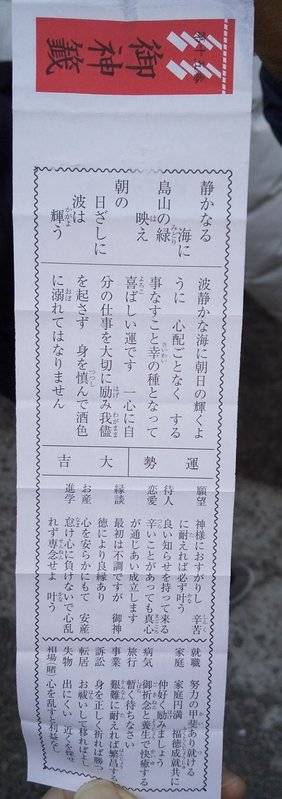 御神籤
静かなる
海に
島山の緑
映え
朝の
日ざしに
波は
輝う
波静かな海に朝日の輝くよ
うに 心配ごとなく する
事なすこと幸の種となって
喜ばしい運です 一心に自
分の仕事を大切に励み我儘
を起さず 身を慎んで酒色
に溺れてはなりません
運勢 大吉
願望 神様におすがりし 辛苦
に耐えれば必ず叶う
待人 良い知らせを持って来る
恋愛 辛いことがあっても真心
が通じあい成立します
縁談 最初は不調ですが 御神
徳により良縁あり
お産 心を安らかにもて 安産
進学 怠け心に負けないで心乱
れず専念せよ 叶う
就職 努力の甲斐あり就ける
家庭 家庭円満 福徳成就共に
仲好く励みましょう
病気 御祈念と養生で快癒する
旅行 暫く待ちなさい
事業 艱難に耐えれば繁昌する
訴訟 身を正しく祈れば勝つ
転居 お祓いして移ればよし
失物 出にくい 近くを
相場(賭) 心を乱すと